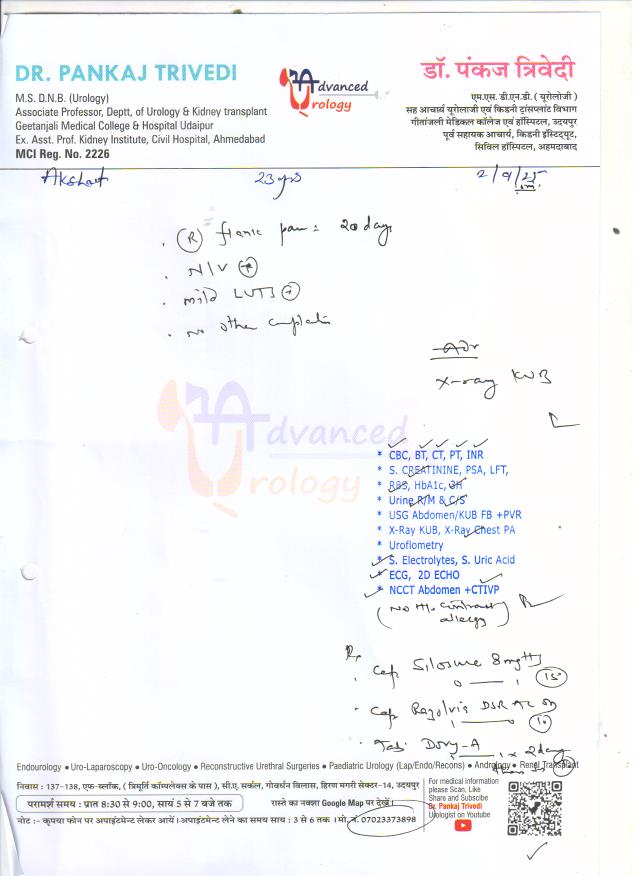 DR. PANKAJ TRIVEDI
M.S. D.N.B. (Urology)
Associate Professor, Deptt, of Urology & Kidney transplant
Geetanjali Medical College & Hospital Udaipur
Ex. Asst. Prof. Kidney Institute, Civil Hospital, Ahmedabad
MCI Reg. No. 2226
Advanced
Urology
डॉ. पंकज त्रिवेदी
एम.एस. डी.एन.डी. ( यूरोलॉजी )
सह आचार्य यूरोलॉजी एवं किडनी ट्रांसप्लांट विभाग
गीतांजली मेडिकल कॉलेज एवं हॉस्पिटल, उदयपुर
पूर्व सहायक आचार्य, किडनी इंस्टिट्यूट,
सिविल हॉस्पिटल, अहमदाबाद
Akshat 23 yrs 2/9/25
. (R) flank pain = 20 days
. N/V (+)
. mild LUTS (+)
. No other complaints
Adv
X-ray KUB
Advanced
Urology
* CBC, BT, CT, PT, INR
* S. CREATININE, PSA, LFT,
* RBS, HbA1c, 3H
* Urine R/M & C/S
* USG Abdomen/KUB FB +PVR
* X-Ray KUB, X-Ray Chest PA
* Uroflometry
* S. Electrolytes, S. Uric Acid
* ECG, 2D ECHO
* NCCT Abdomen +CTIVP
(No H/o contrast
allergy)
Rx
. Cap Silosure 8mg HS
0 — 1 (15)
. Cap DSR
1 — 0 (10)
. Tab. -A
1 x 2 days
Endourology ● Uro-Laparoscopy ● Uro-Oncology ● Reconstructive Urethral Surgeries ● Paediatric Urology (Lap/Endo/Recons) ● Andrology ● Renal Transplant
निवास : 137-138, एफ-ब्लॉक, ( त्रिमूर्ति कॉम्पलेक्स के पास ), सी.ए. सर्कल, गोवर्धन विलास, हिरण मगरी सेक्टर-14, उदयपुर
परामर्श समय : प्रात 8:30 से 9:00, सायं 5 से 7 बजे तक
रास्ते का नक्शा Google Map पर देखें।
नोट :- कृपया फोन पर अपाइंटमेन्ट लेकर आयें। अपाइंटमेन्ट लेने का समय साय : 3 से 6 तक । मो. नं. 07023373898
For medical information
please Scan, Like
Share and Subscibe
Dr. Pankaj Trivedi
Urologist on Youtube